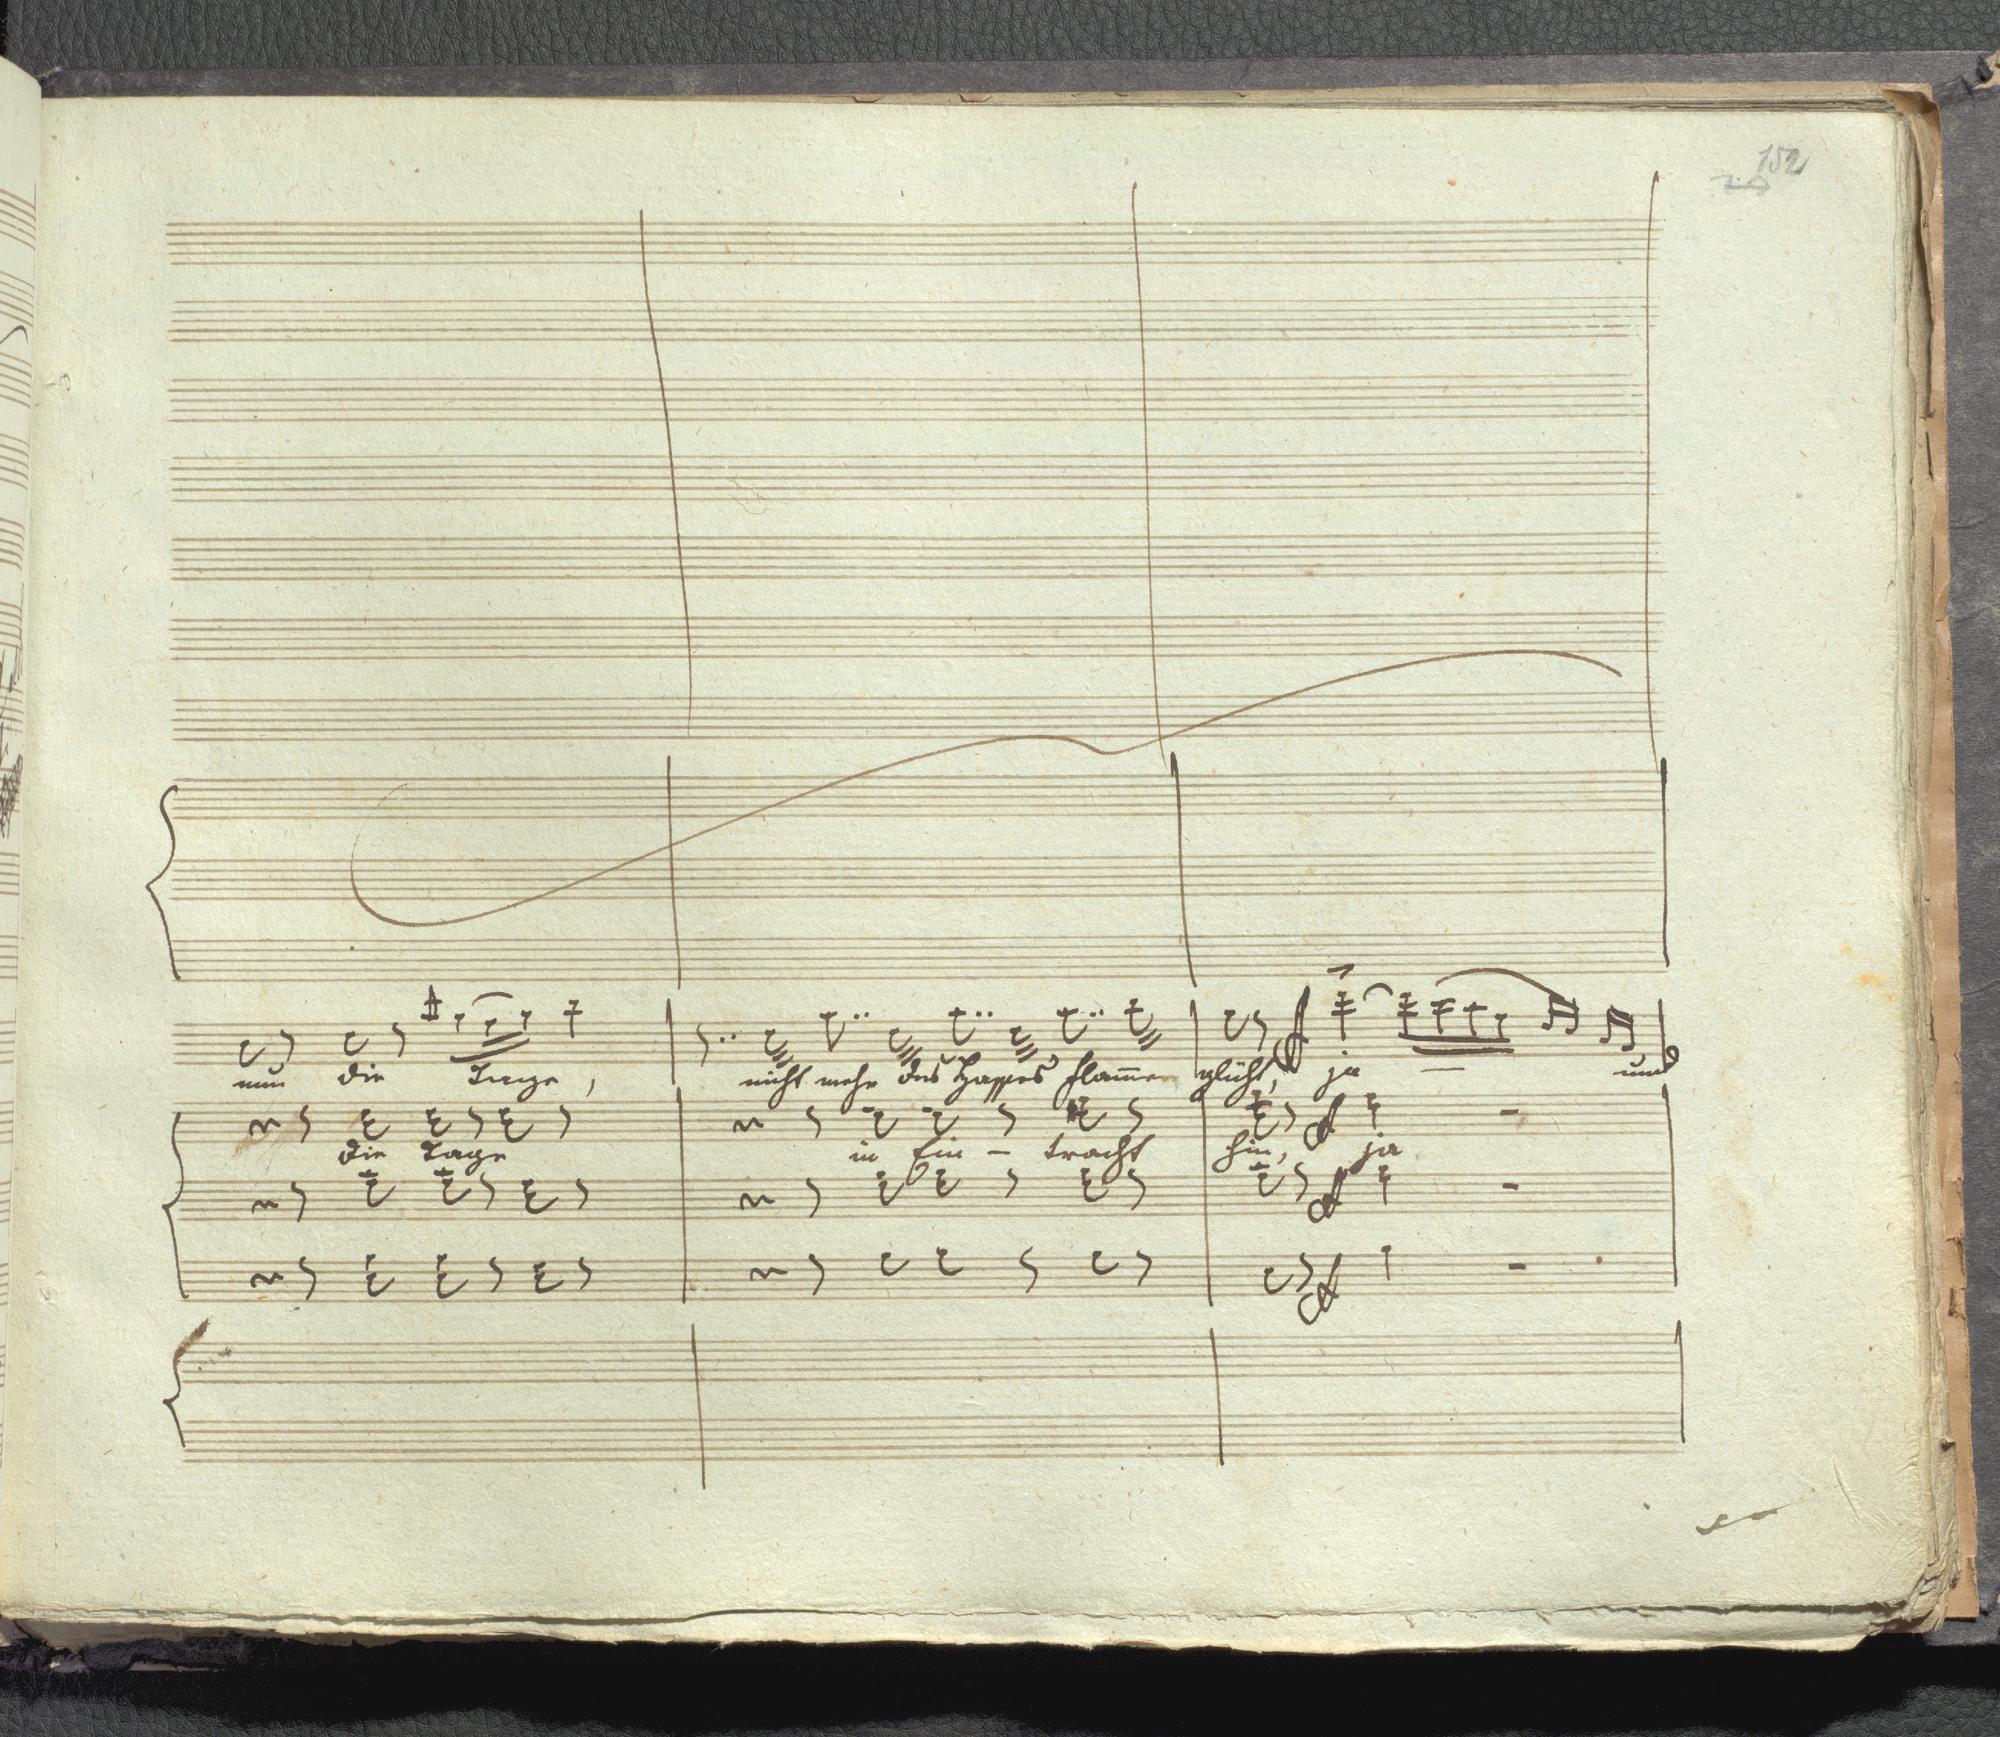 152
nun die Tage, nicht mehr des Hasses Flam̅en glüht, ja — und
die Tage in Ein - tracht hin, ja